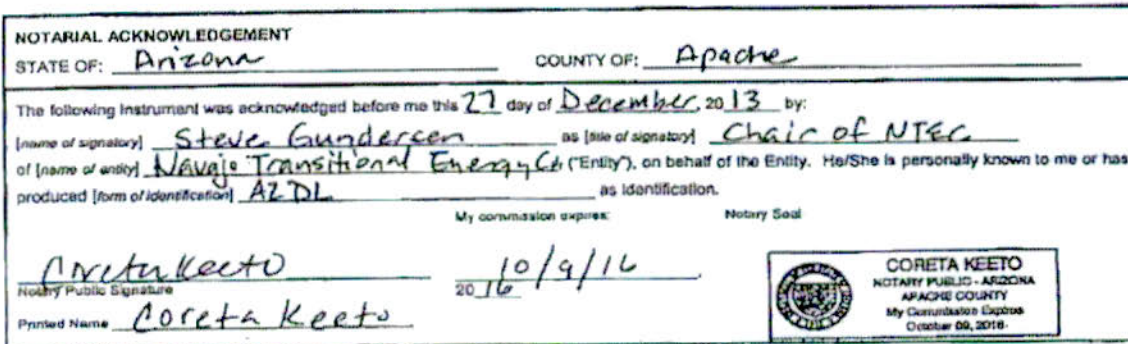 NOTARIAL ACKNOWLEDGEMENT
STATE OF: Arizona COUNTY OF: Apache
The following Instrument was acknowledged before me this 27 day of December, 2013 by:
[name of signatory] Steve Gundersen as [title of signatory] Chair of NTEC
of [name of entity] Navajo Transitional Energy Co ("Entity"), on behalf of the Entity. He/She is personally known to me or has
produced [form of identification] AZ DL as identification.
My commission expires: Notary Seal
Coreta Keeto 10/9/16
Notary Public Signature 2016
Printed Name Coreta Keeto
CORETA KEETO
NOTARY PUBLIC - ARIZONA
APACHE COUNTY
My Commission Expires
October 09, 2016